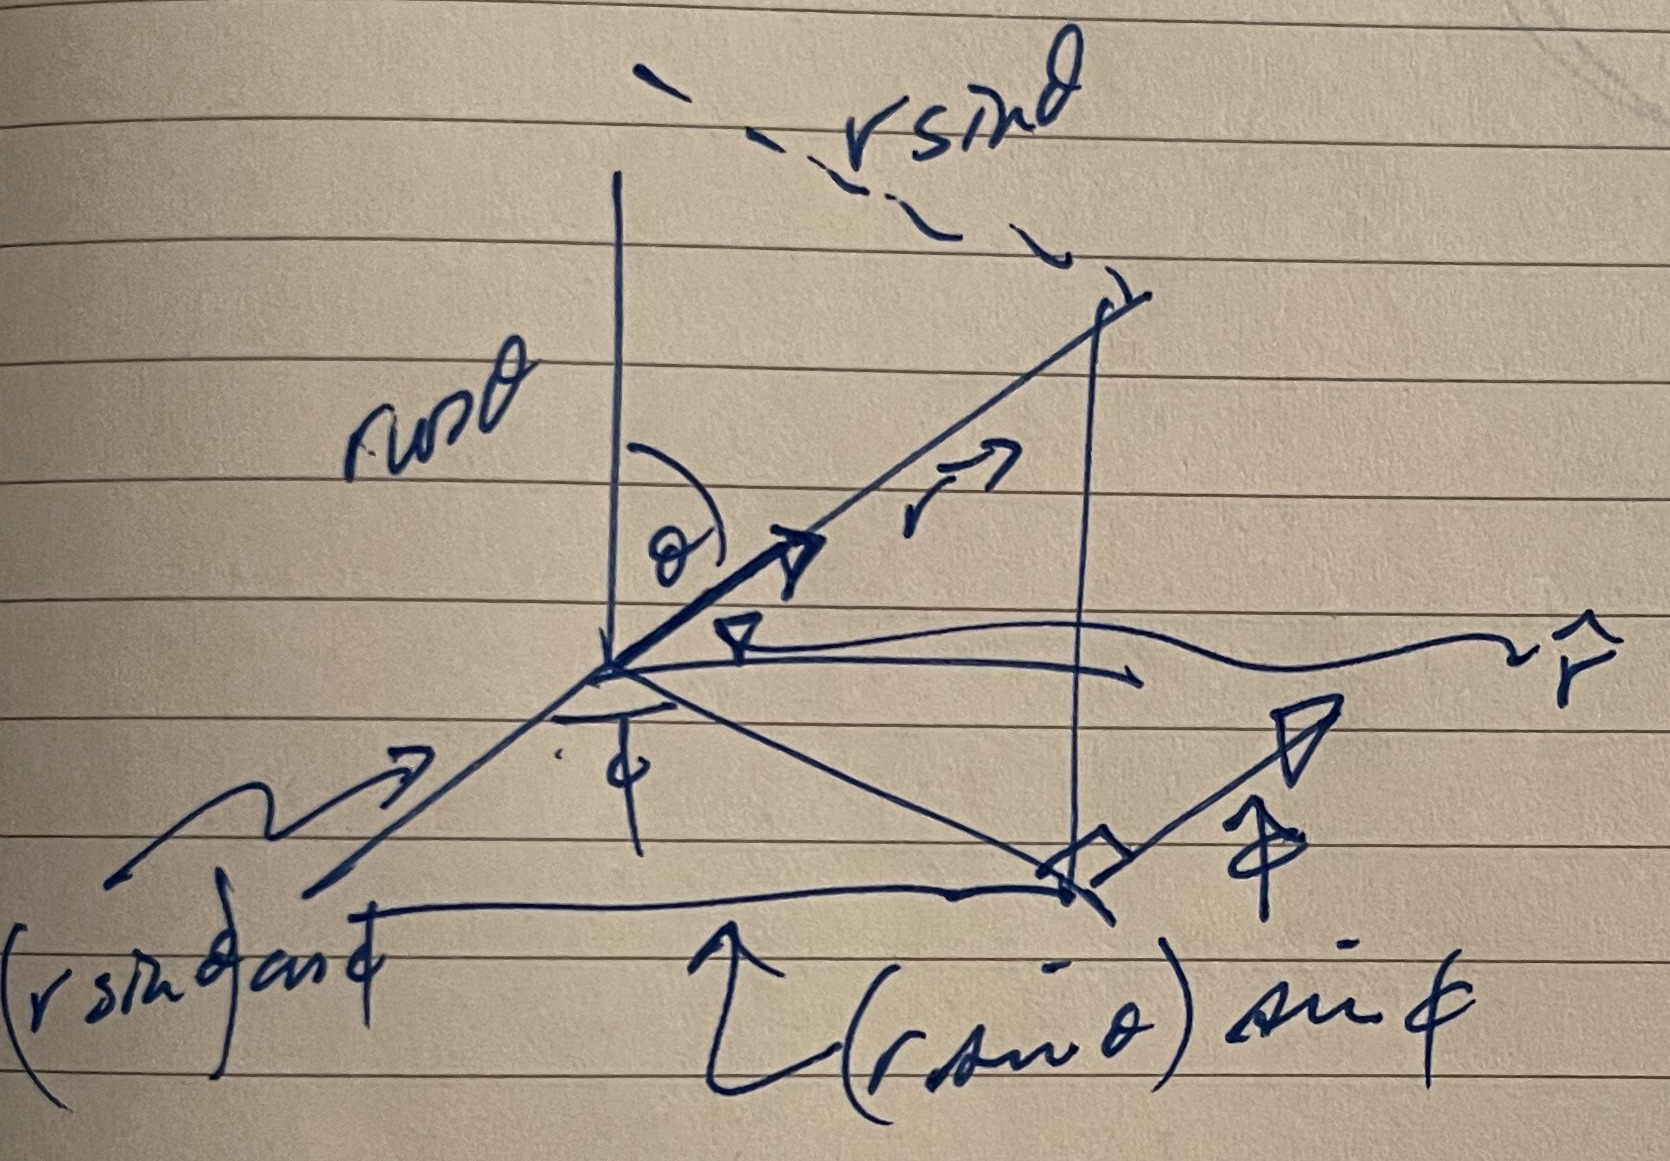 r sinθ
r cosθ
r⃗
θ
r̂
ϕ
ϕ̂
(r sinθ) cosϕ
(r sin θ) sin ϕ